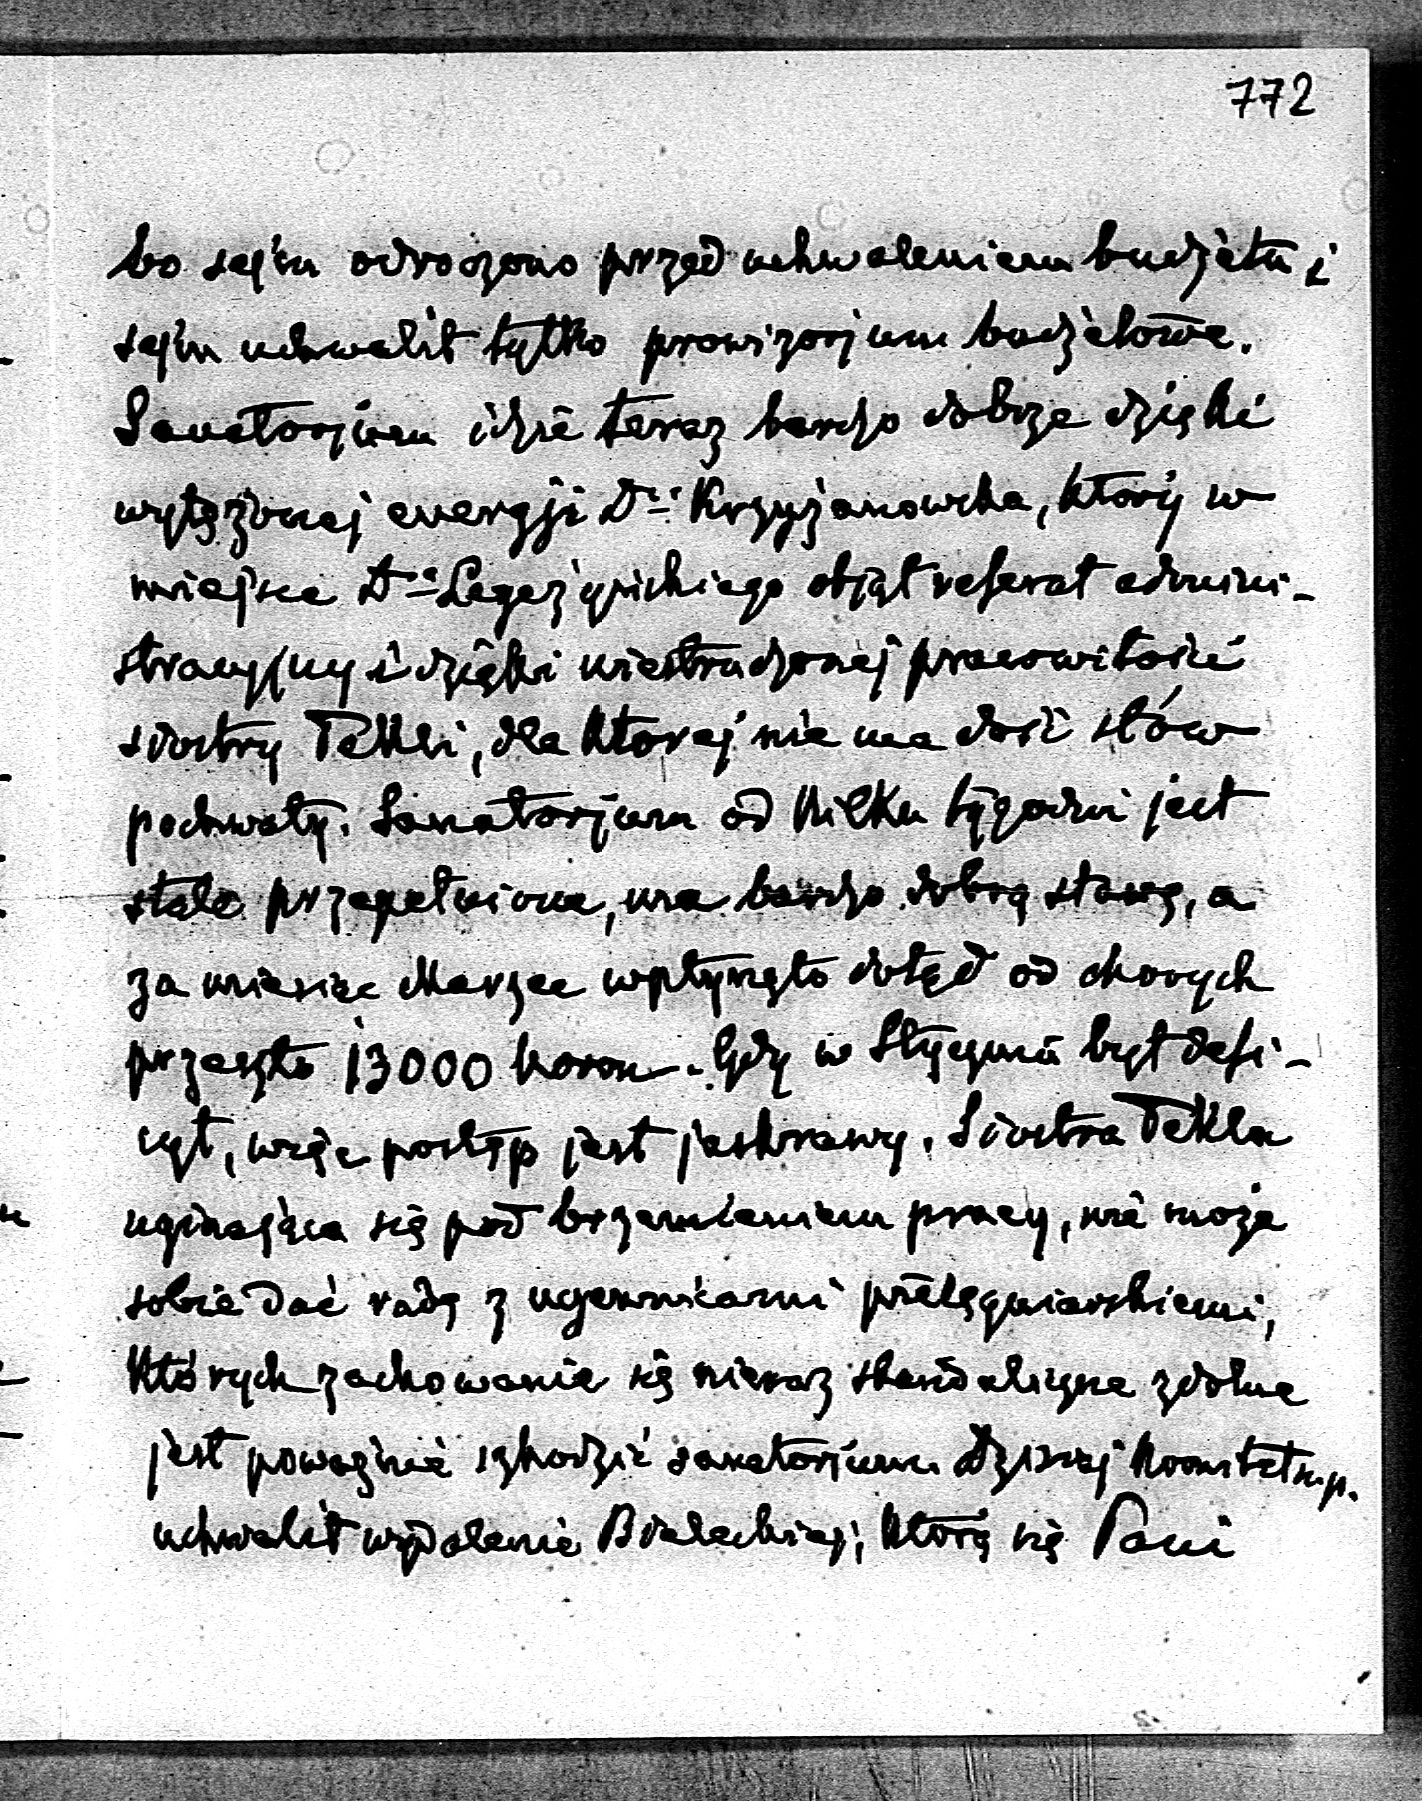 772
bo sejm odroczono przed uchwaleniem budżetu i
sejm uchwalił tylko prowizorjum budżetowe.
Sanatorjum idzie teraz bardzo dobrze dzięki
wytężonej energji Dra Krzyżanowska, który w
miejsce Dra Legeżyńskiego objął referat admini-
stracyjny i dzięki niestrudzonej pracowitości
siostry Tekli, dla której nie ma dość słów
pochwały. Sanatorjum od kilku tygodni jest
stale przepełnione, ma bardzo dobrą sławę, a
za miesiąc Marzec wpłynęło dotąd od chorych
przeszło 13000 koron. Gdy w Styczniu był defi-
cyt, więc postęp jest jaskrawy. Siostra Tekla
uginająca się pod brzemieniem pracy, nie może
sobie dać rady z uczennicami pielęgniarskiemi,
których zachowanie się nieraz skandaliczne zdolne
jest poważnie szkodzić sanatorjum. Dzisiaj Komitet
uchwalił wydalenie Bialeckiej, którą się Pani